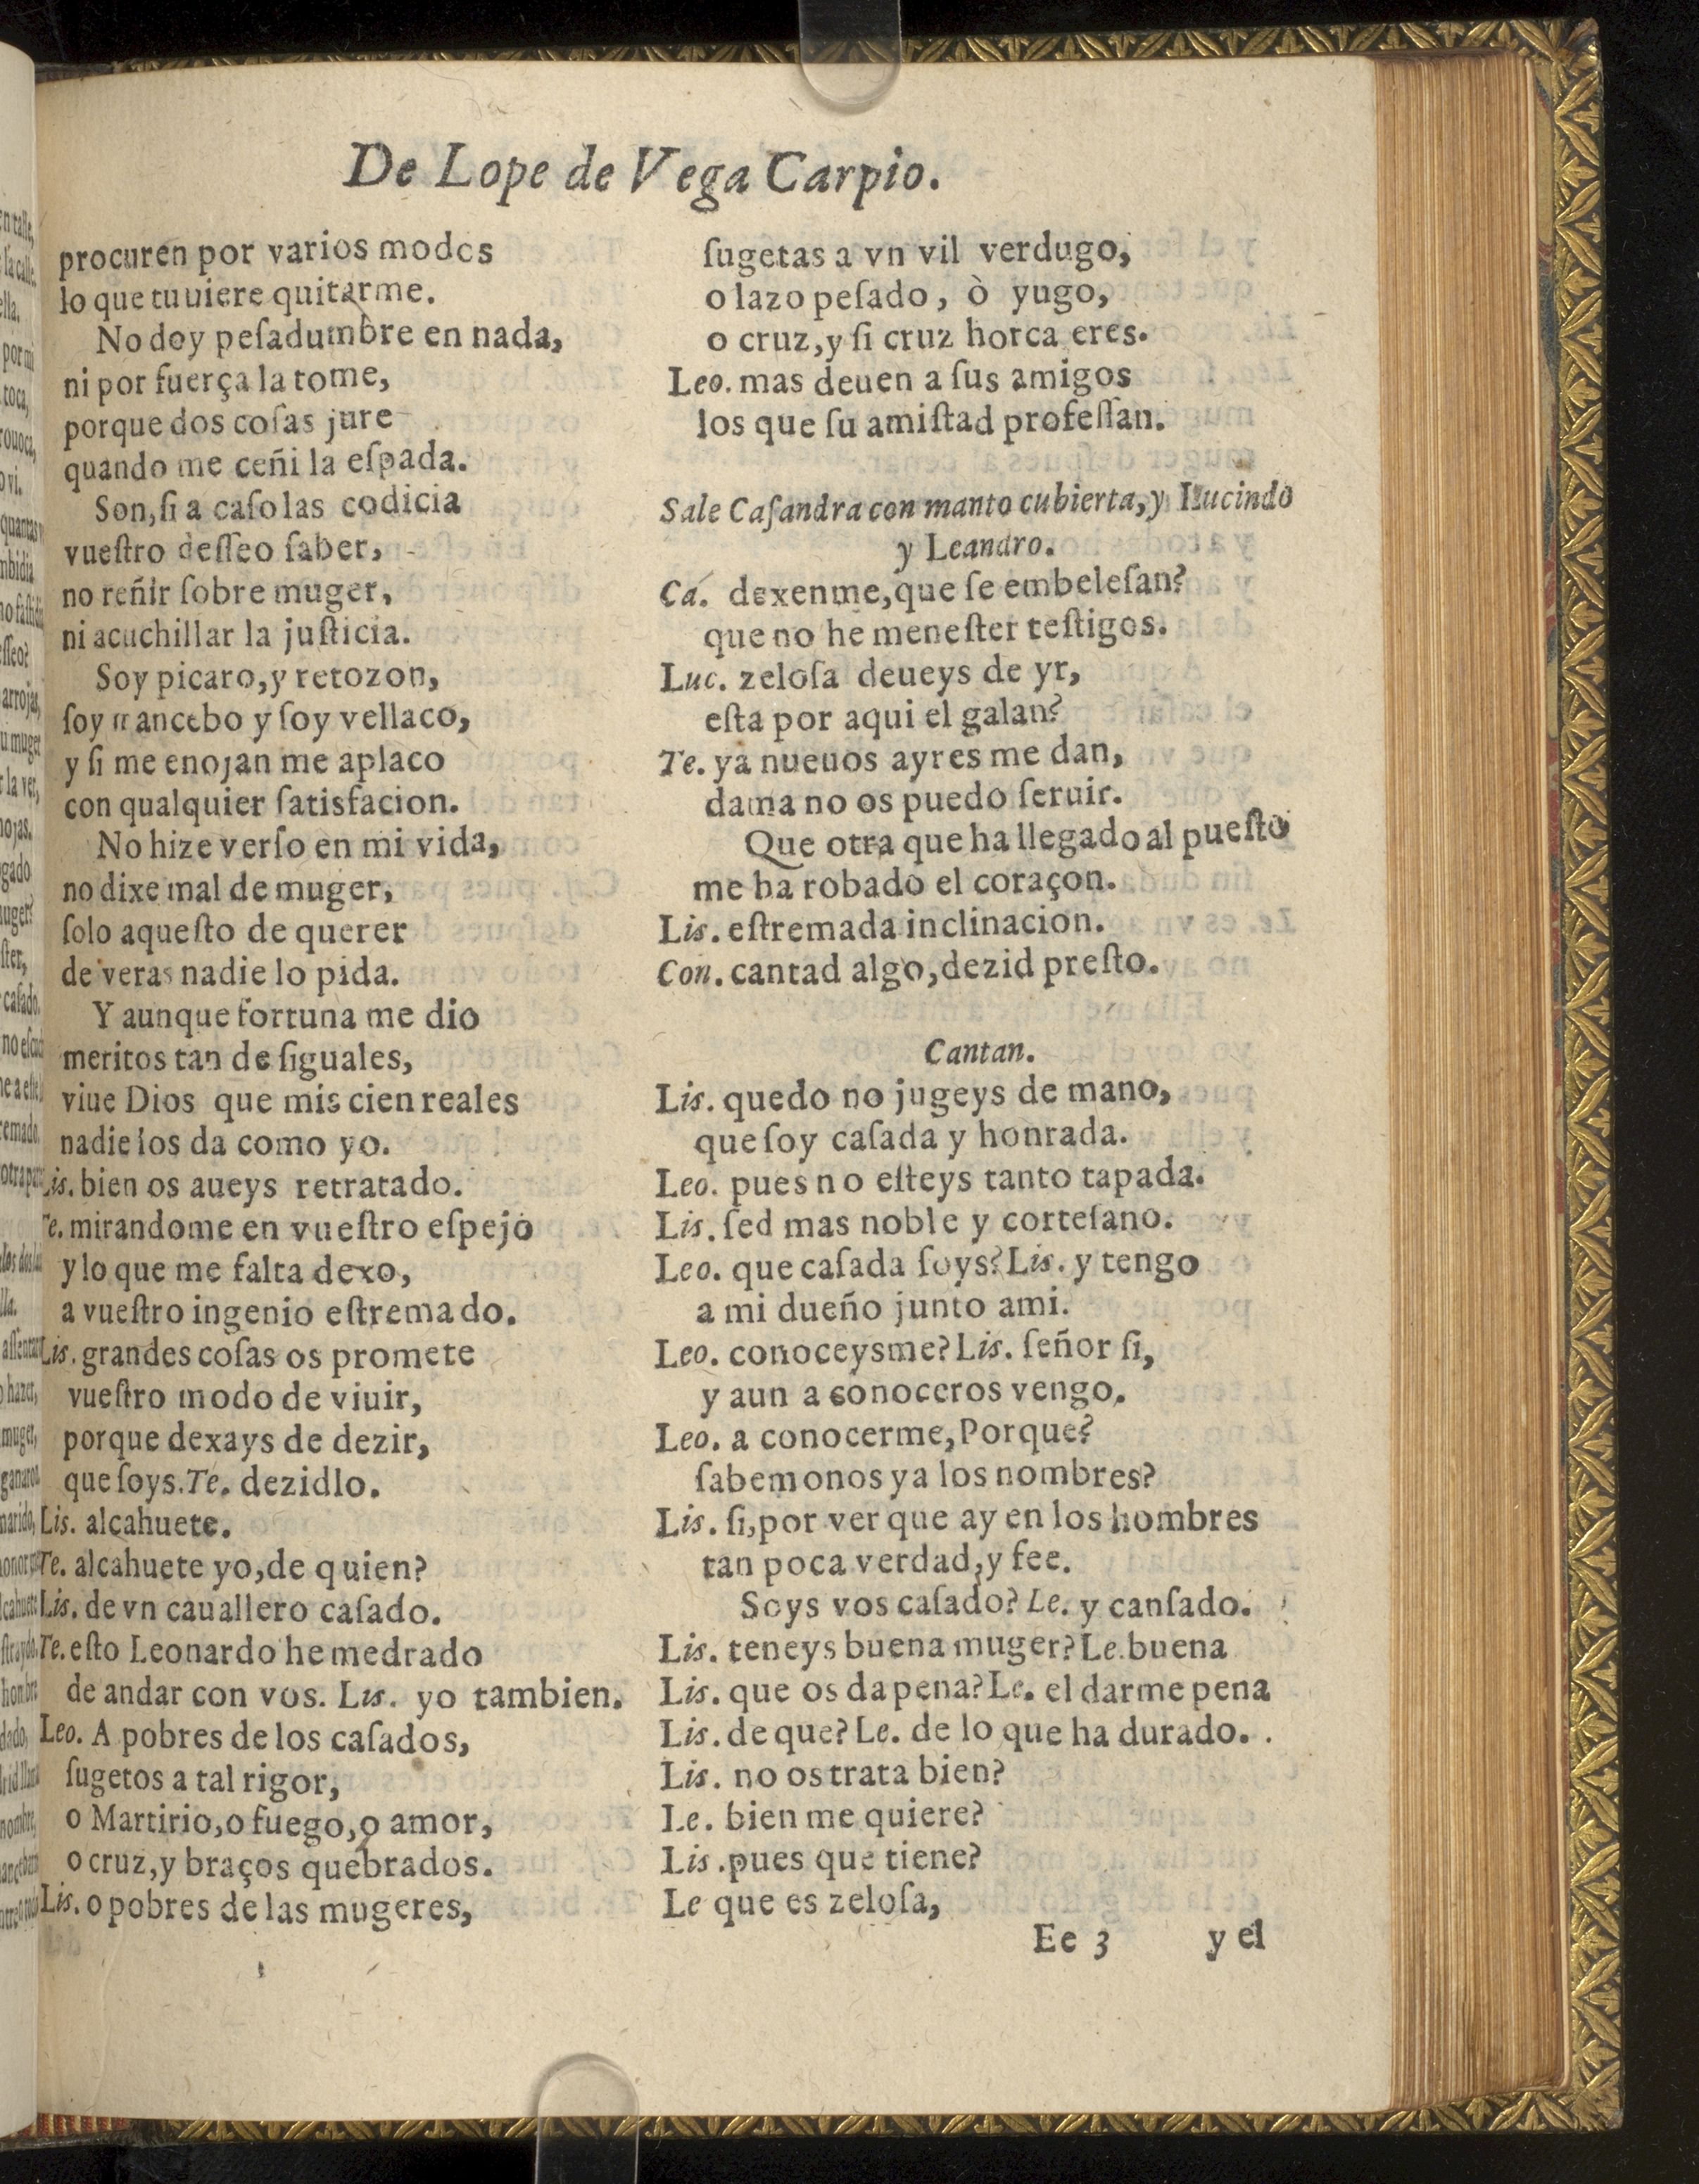 De Lope de Vega Carpio.
procuren por varios modos
lo que tuuiere quitarme.
No doy peſadumbre en nada,
ni por fuerça la tome,
porque dos coſas jure
quando me ceñi la eſpada.
Son, ſi a caſo las codicia
vueſtro deſſeo ſaber,
no reñir ſobre muger,
ni acuchillar la juſticia.
Soy picaro, y retozon,
ſoy mancebo y ſoy vellaco,
y ſi me enojan me aplaco
con qualquier ſatisfacion.
No hize verſo en mi vida,
no dixe mal de muger,
ſolo aqueſto de querer
de veras nadie lo pida.
Y aunque fortuna me dio
meritos tan deſiguales,
viue Dios que mis cien reales
nadie los da como yo.
Lis. bien os aueys retratado.
Te. mirandome en vueſtro eſpejo
y lo que me falta dexo,
a vueſtro ingenio eſtremado.
Lis. grandes coſas os promete
vueſtro modo de viuir,
porque dexays de dezir,
que ſoys. Te. dezidlo.
Lis. alcahuete.
Te. alcahuete yo, de quien?
Lis. de vn cauallero caſado.
Te. eſto Leonardo he medrado
de andar con vos. Lis. yo tambien.
Leo. A pobres de los caſados,
ſugetos a tal rigor,
o Martirio, o fuego, o amor,
o cruz, y braços quebrados.
Lis. o pobres de las mugeres,
ſugetas a vn vil verdugo,
o lazo peſado, ò yugo,
o cruz, y ſi cruz horca eres.
Leo. mas deuen a ſus amigos
los que ſu amiſtad profeſſan.
Sale Caſandra con manto cubierta, y Lucindo
y Leandro.
Ca. dexenme, que ſe embeleſan?
que no he meneſter teſtigos.
Luc. zeloſa deueys de yr,
eſta por aqui el galan?
Te. ya nueuos ayres me dan,
dama no os puedo ſeruir.
Que otra que ha llegado al pueſto
me ha robado el coraçon.
Lis. eſtremada inclinacion.
Con. cantad algo, dezid preſto.
Cantan.
Lis. quedo no jugeys de mano,
que ſoy caſada y honrada.
Leo. pues no eſteys tanto tapada.
Lis. ſed mas noble y corteſano.
Leo. que caſada ſoys? Lis. y tengo
a mi dueño junto ami.
Leo. conoceysme? Lis. ſeñor ſi,
y aun a conoceros vengo.
Leo. a conocerme, Porque?
ſabemonos ya los nombres?
Lis. ſi, por ver que ay en los hombres
tan poca verdad, y fee.
Soys vos caſado? Le. y canſado.
Lis. teneys buena muger? Le. buena
Lis. que os da pena? Le. el darme pena
Lis. de que? Le. de lo que ha durado.
Lis. no os trata bien?
Le. bien me quiere?
Lis. pues que tiene?
Le que es zeloſa,
Ee 3 y el